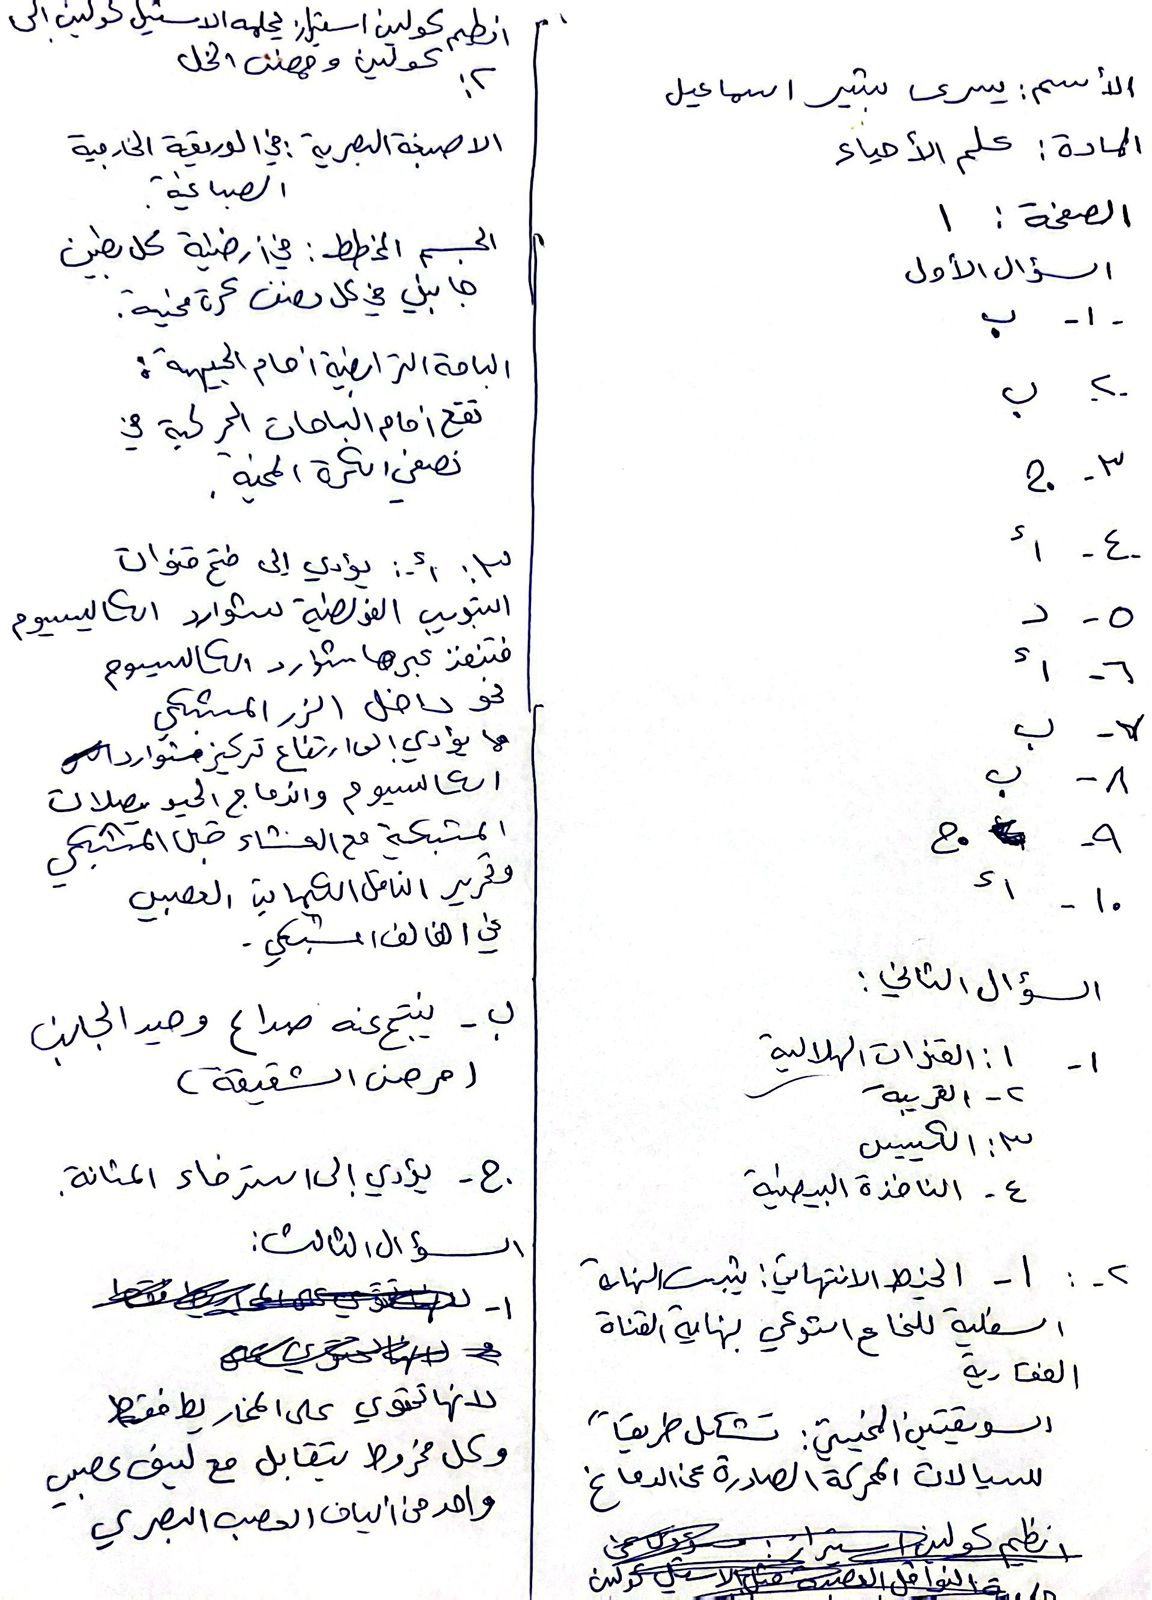 الأسم: يسرى بشير اسماعيل
المادة: علم الأحياء
الصفحة: ١
السؤال الأول
١- ب
٢- ب
٣- ج
٤- أ
٥- د
٦- أ
٧- ب
٨- ب
٩- ج
١٠- أ
السؤال الثاني:
١- ١: القنوات الهلالية
٢- القريبة
٣: الكييس
٤- النافذة البيضية
٢-: ١- الخيط الانتهائي: يثبت النهاية
السفلية للنخاع الشوكي بنهاية القناة
الفقارية
السويقتين المخيتين: تشكل طريقاً
للسيالات المحركة الصادرة عن الدماغ
انظيم كولين استيراز:
النواقل العصبية مثل الاستيل كولين
انظيم كولين استيراز: يحلمه الاستيل كولين إلى
كولين وحمض الخل
٢:
الاصبغة البصرية: في الوريقة الخارجية
الصباغية.
الجسم المخطط: في أرضية كل بطين
جانبي في كل نصف كرة مخية.
الباحة الترابطية أمام الجبهية:
تقع أمام الباحات الحركية في
نصفي الكرة المخية.
٣: أ-: يؤدي إلى فتح قنوات
التبويب الفولطية لشوارد الكالسيوم
فتنفذ عبرها شوارد الكالسيوم
نحو داخل الزر المشبكي
مما يؤدي إلى ارتفاع تركيز شوارد
الكالسيوم واندماج الحويصلات
المشبكية مع الغشاء قبل المشبكي
وتحرير الناقل الكيميائي العصبي
في الفالق المشبكي.
ب- ينتج عنه صداع وحيد الجانب
(مرض الشقيقة)
ج- يؤدي إلى استرخاء المثانة.
السؤال الثالث:
١-
لانها تحتوي على المخاريط فقط
وكل مخروط يتقابل مع ليف عصبي
واحد من ألياف العصب البصري